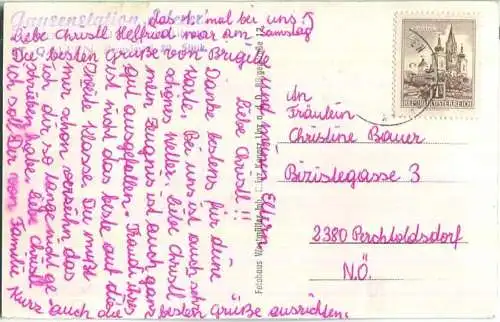 Jausenstation
das 1. mal bei uns!
Liebe Christl Helfried war am Samstag
Die besten Grüße von Brigitte
und meinen Eltern
Liebe Christl!!
Danke bestens für deine
Karte. Bei uns ist auch sehr
schönes Wetter. liebe Christl
mein Zeugnis ist auch ganz
gut ausgefallen. Traudi ihres
ist nicht das beste auf die
zweite Klasse. Du mußt
mir schon verzeihn das
ich dir so lange nicht ge-
schrieben habe. liebe Christl
ich soll Dir von Familie
Kurz auch die besten Grüße ausrichten.
Fotohaus
REPUBLIK ÖSTERREICH
An
Fräulein
Christine Bauer
Bizistegasse 3
2380 Perchtoldsdorf
N.Ö.